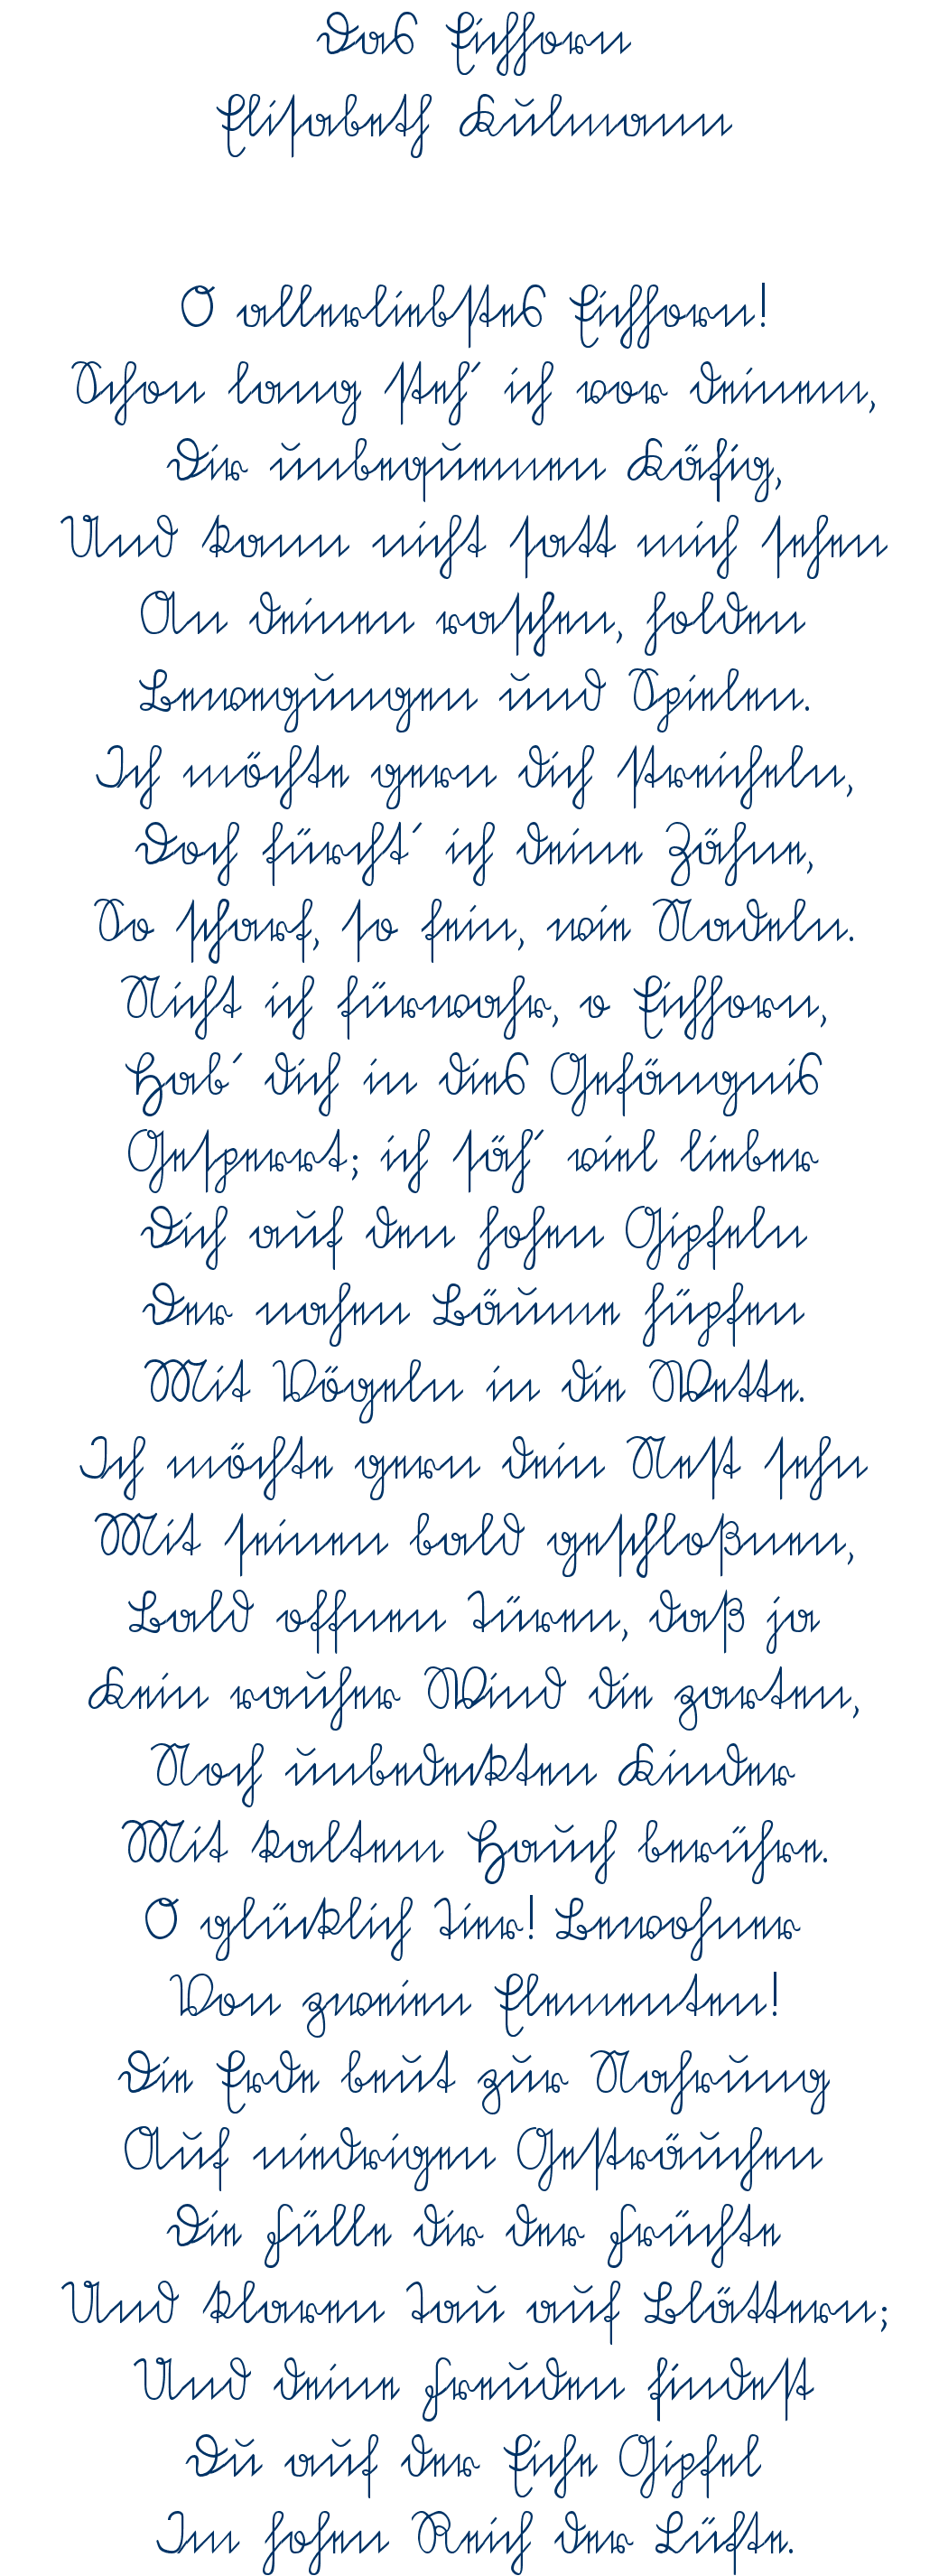 Das Eichhorn
Elisabeth Kulmann
O allerliebstes Eichhorn!
Schon lang steh´ ich vor deinem,
Dir unbequemen Käfig,
Und kann nicht satt mich sehen
An deinen raschen, holden
Bewegungen und Spielen.
Ich möchte gern dich streicheln,
Doch fürcht´ ich deine Zähne,
So scharf, so fein, wie Nadeln.
Nicht ich fürwahr, o Eichhorn,
Hab´ dich in dies Gefängnis
Gesperrt; ich säh´ viel lieber
Dich auf den hohen Gipfeln
Der nahen Bäume hüpfen
Mit Vögeln in die Wette.
Ich möchte gern dein Nest sehn
Mit seinen bald geschloßnen,
Bald offnen Türen, daß ja
Kein rauher Wind die zarten,
Noch unbedeckten Kinder
Mit kaltem Hauch berühre.
O glücklich Tier! Bewohner
Von zweien Elementen!
Die Erde beut zur Nahrung
Auf niedrigen Gesträuchen
Die Fülle dir der Früchte
Und klaren Tau auf Blättern;
Und deine Freuden findest
Du auf der Eiche Gipfel
Im hohen Reich der Lüfte.